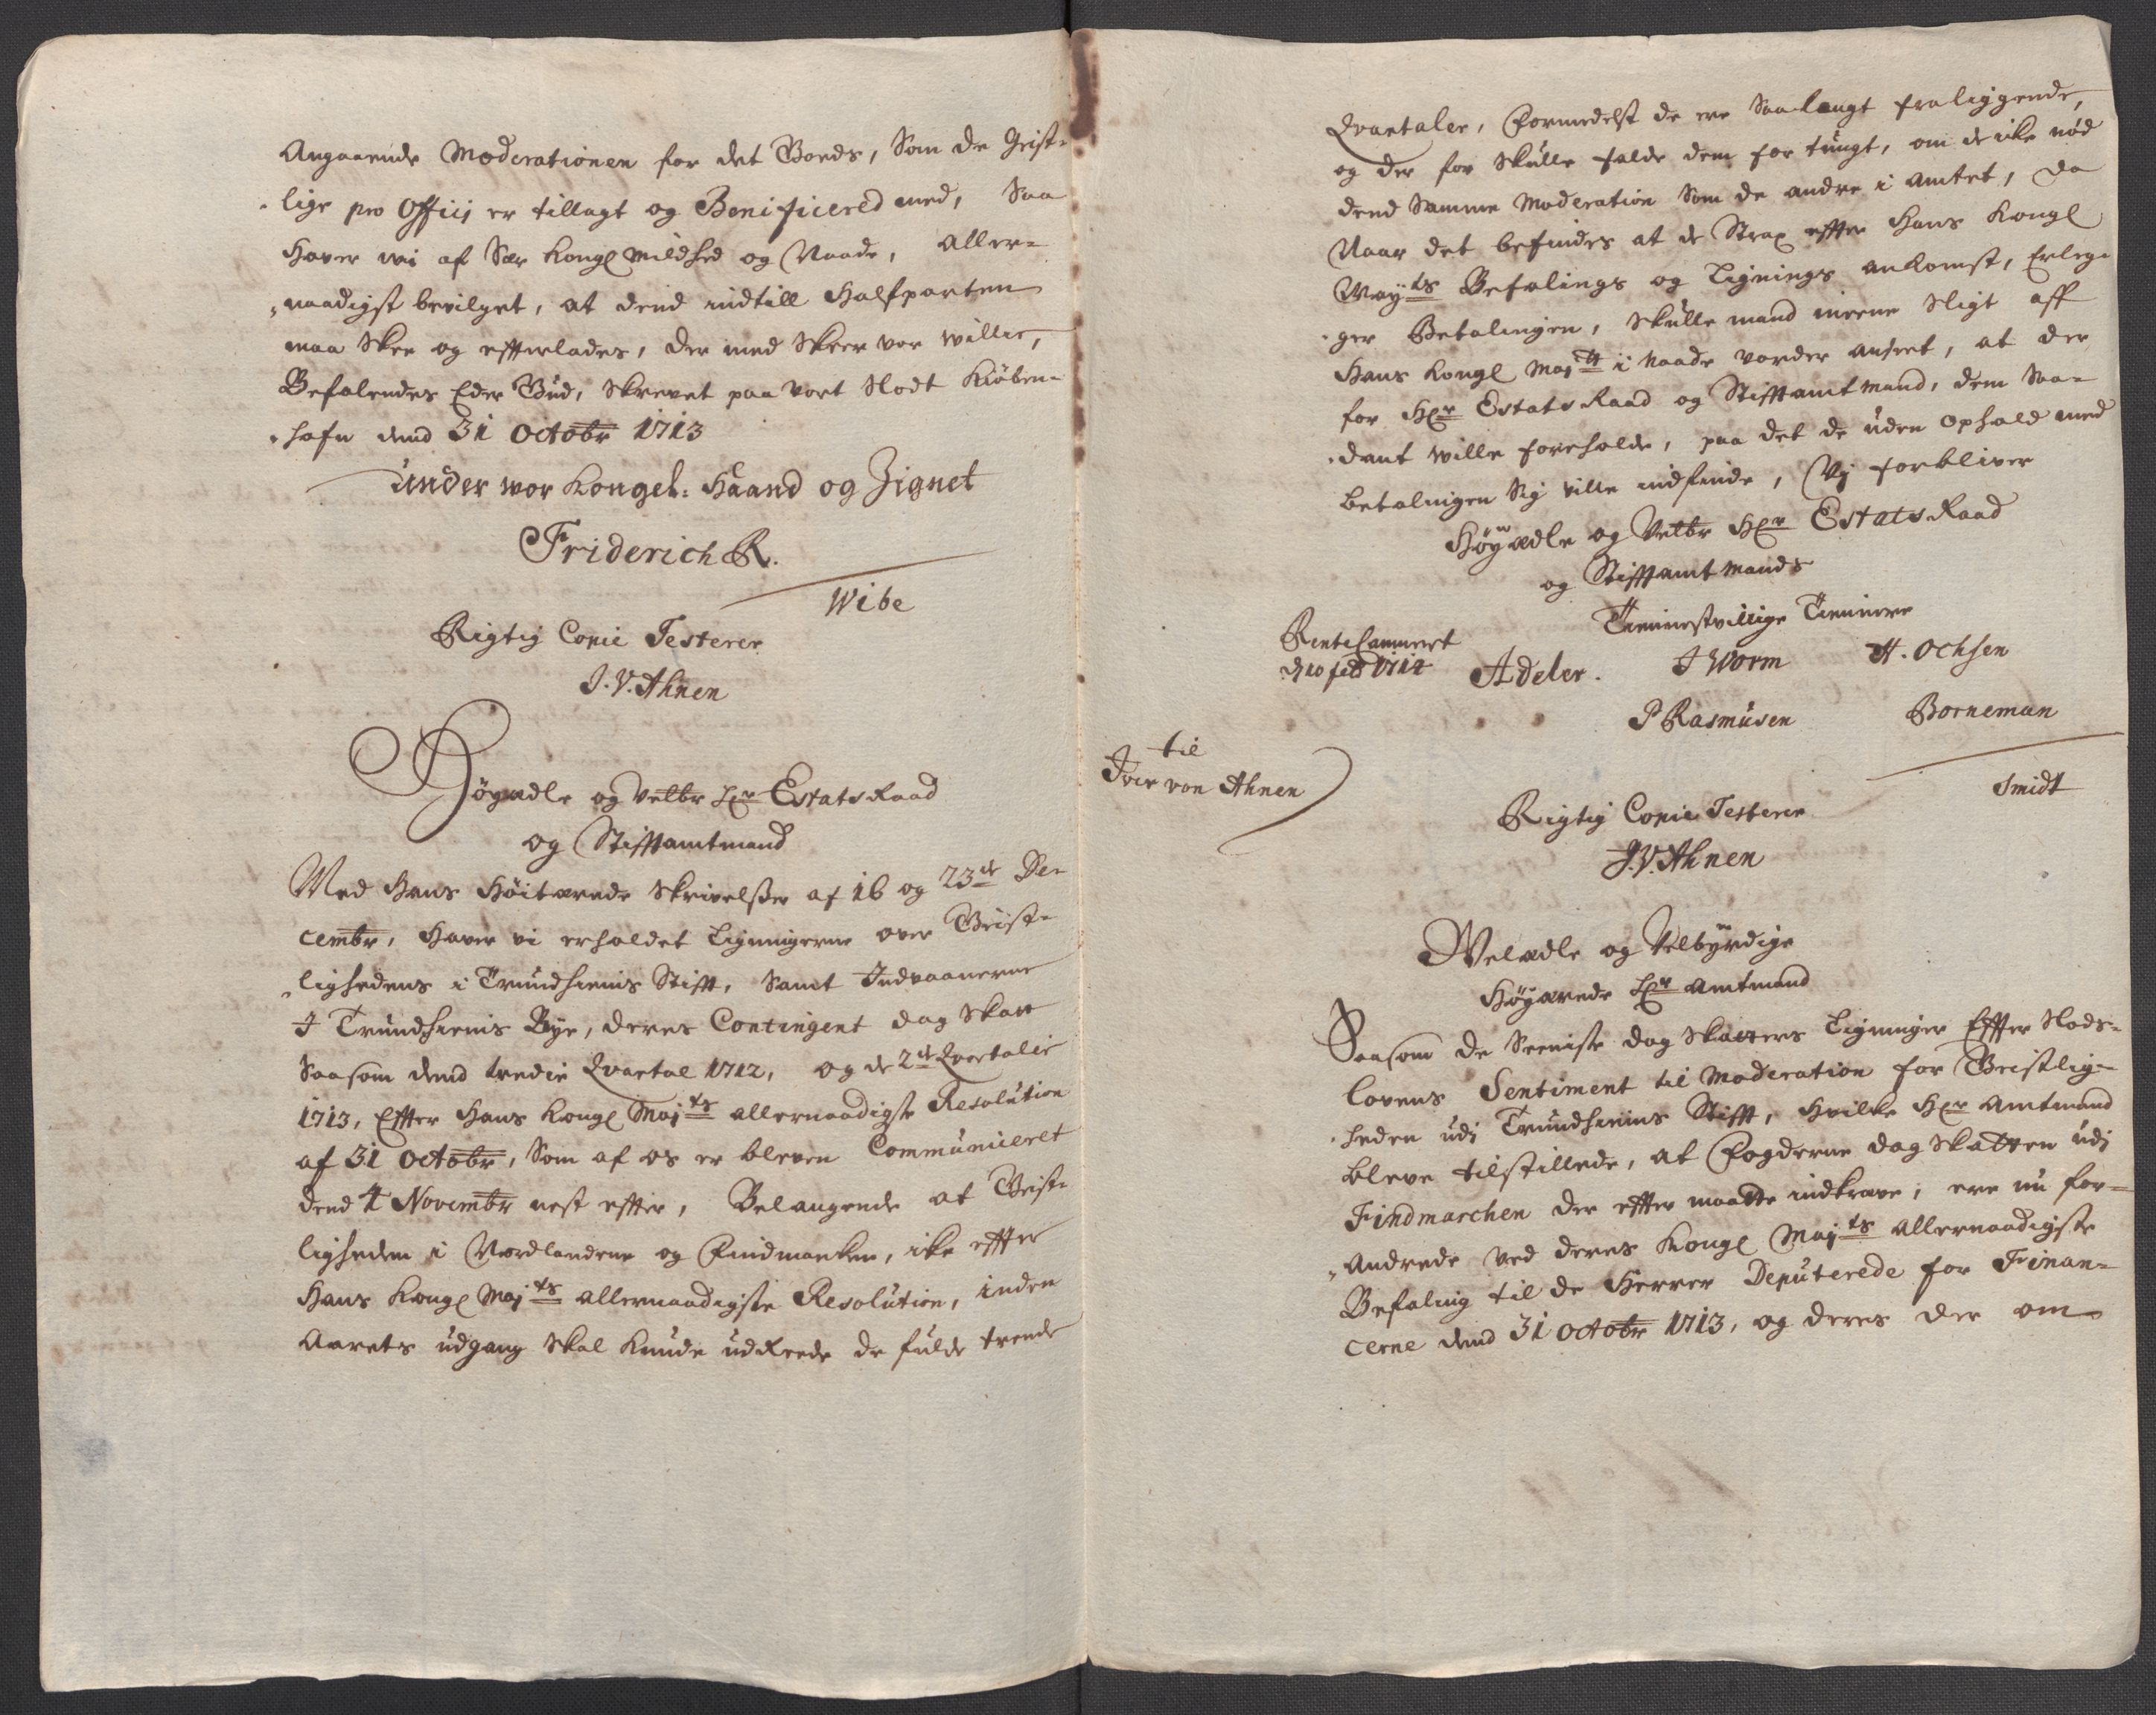 Angaaende Moderationen for det Bords, Som de Geist-
lige pro Officij er tillagt og Benificered med, Saa
Hafver wi af Sær Kongl Mildhed og Naade, Aller-
naadigst bevilget, at dend indtill Halfparten
maa Skee og effterlades, der med Skeer vor willie,
Befalendes Eder Gud, Skrevet paa vort Slodt Kiöben-
hafn dend 31 Octobr 1713
Under wor Kongel: Haand og Zignet
Friderich R.
Wibe
Rigtig Copie Testerer
J. V. Ahnen
Höyædle og Velbr Hr Estats Raad
og Stifftamtmand
Med Hans Höitærede Skrivelser af 16 og 23de De-
cembr, Haver vi erholdet Ligningerne over Geist-
lighedens i Trundhiems Stifft, Samt Indvaanerne
I Trundhiems Bye, deres Contingent dag Skatt
Saasom dend tredie Qvartal 1712, og de 2de Qvartaler
1713, Effter Hans Kongl Majts allernaadigste Resolution
af 31 Octobr, Som af os er bleven Communiceret
dend 4 Novembr nest effter, Belangende at Geist-
ligheden i Nordlandene og Findmarken, ike effter
Hans Kongl Majts allernaadigste Resolution, inden
Aarets udgang Skal Kunde udReede de fulde trende
Qvartaler, formedelst de ere Saa langt fraliggende,
og der for Skulle falde dem for tungt, om de ike nöd
dend Samme Moderation Som de andre i Amtet, da
Naar det befindes at de Strax effter Hans Kongl
Mayts Befalings og Lignings ankomst, Erleg-
ger Betalingen, Skulle mand meene Sligt aff
Hans Kongl Majtt i Naade vorder anseet, at der
for Hr Estats Raad og Stifftamtmand, dem Saa-
dant wille foreholde, paa det de uden Ophold med
betalningen Sig ville indfinde, Vj forbliver
Höyædle og Velbr Hr Estats Raad
og Stifftamtmands
Tienestvillige Tiennere
RenteCammeret
d 10 feb 1714
Adeler. J Worm H. Ochsen
P Rasmusen Borneman
til
Iver von Ahnen
Smidt
Rigtig Copie Testerer
J. V. Ahnen
Welædle og Velbyrdige
Höyærede Hr Amtmand
Saasom de Seeniste dag Skatters Ligninger Effter Slods-
lovens Sentiment til Moderation for Geistlig-
heden udi Trundhiems Stifft, Hvilke Hr Amtmand
bleve tilstillede, at Fogderne dag Skatten udj
Findmarchen der effter maatte indkræve, ere nu for-
andrede ved deres Kongl Majts allernaadigste
Befaling til de Herrer Deputerede for Finan-
cerne dend 31 Octobr 1713, og deres der om